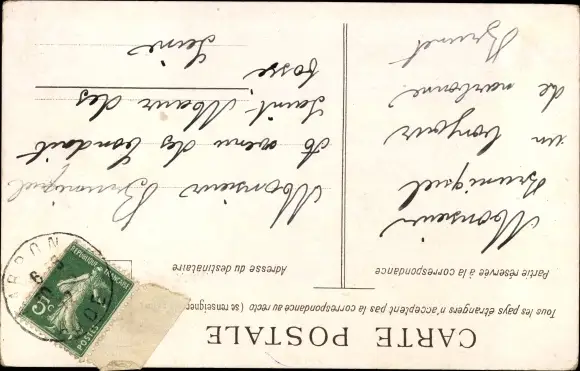 CARTE POSTALE
Tous les pays étrangers n'acceptent pas la correspondance au recto (se renseigner
Partie réservée à la correspondance
Adresse du destinataire
Monsieur
Bruniquel
un bonjour
de narbonne
Brunet
Monsieur Bruniquel
avenue des
Saint Maur des
fosse
Seine
REPUBLIQUE FRANCAISE
5c
POSTES